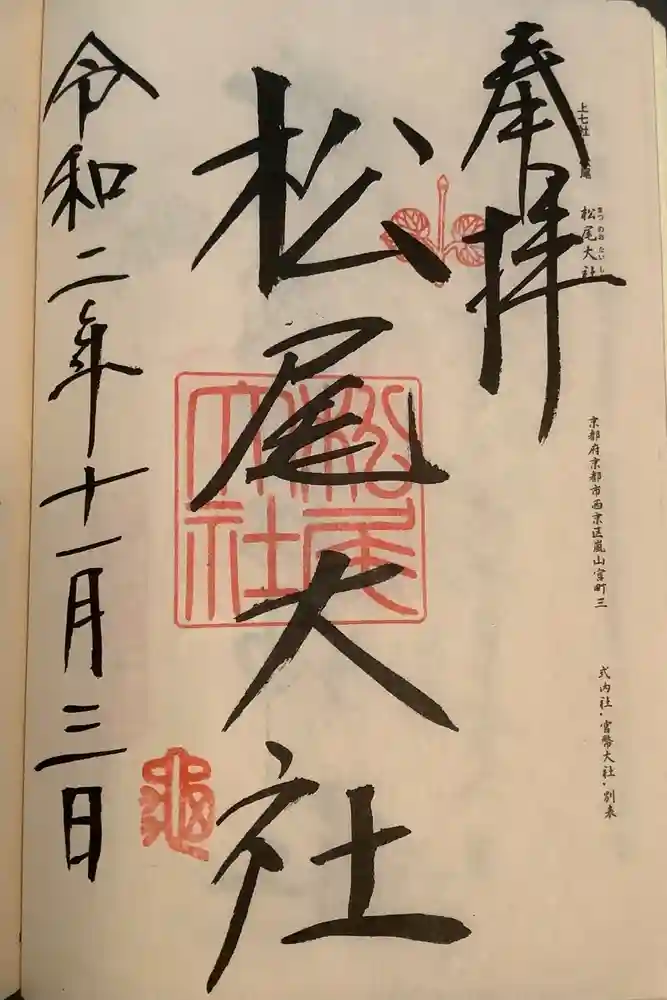 上七社
松尾大社
まつのおたいしゃ
京都府京都市西京区嵐山宮町三
式内社・官幣大社・別表
奉拝
松尾大社
松尾大社
亀
令和二年十一月三日